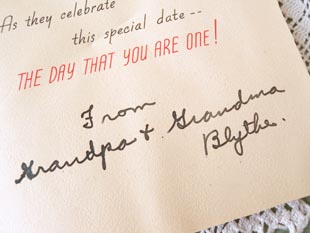 As they celebrate
this special date--
THE DAY THAT YOU ARE ONE!
From
Grandpa + Grandma
Blythe.